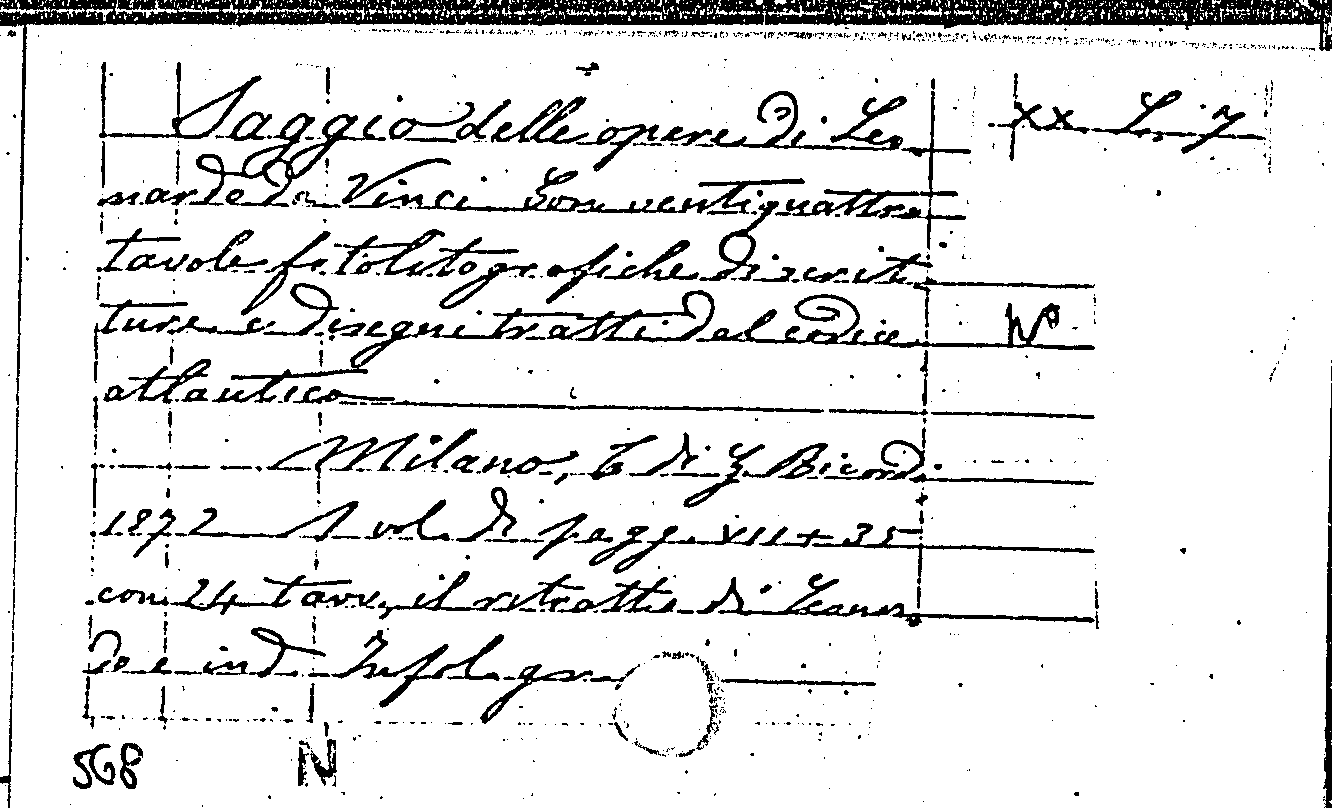 Saggio delle opere di Leo- XX. L. 7
nardo da Vinci. Con ventiquattro
tavole fotolitografiche di scrit-
ture e disegni tratti dal codice
atlantico
Milano, T. di G. Ricordi
1872 1 vol. di pagg. VII + 35
con 24 tavv., il ritratto di Leonar-
do e ind. In fol. gr.
568 N